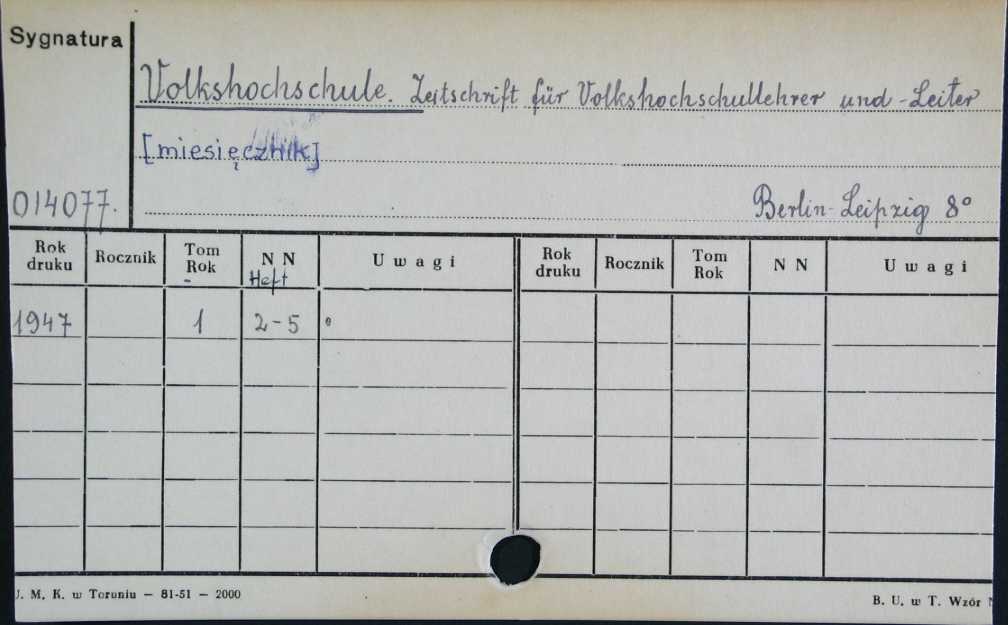 Sygnatura
Volkshochschule. Zeitschrift für Volkshochschullehrer und -Leiter
[miesięcznik]
014077.
Berlin-Leipzig 8°
Rok druku Rocznik Tom Rok N N Heft Uwagi Rok druku Rocznik Tom Rok N N Uwagi
1947 1 2-5
U. M. K. w Toruniu — 81-51 — 2000
B. U. w T. Wzór